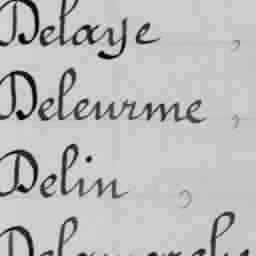 Delaye ,
Deleurme ,
Delin ,